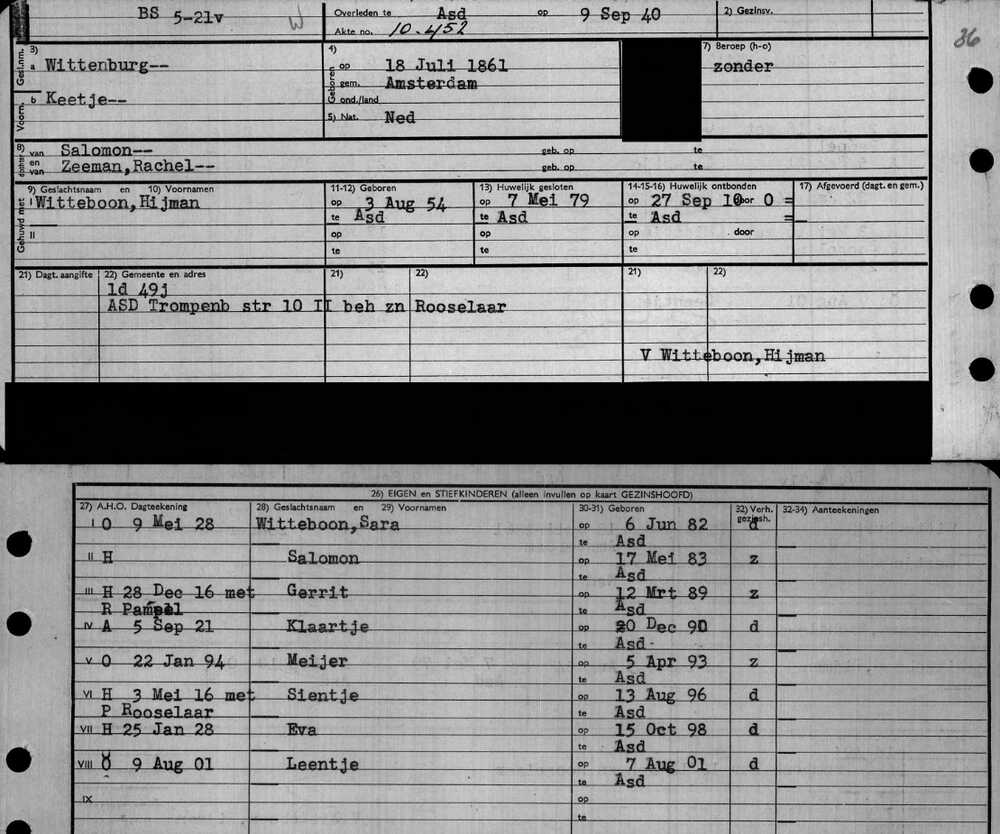 BS 5-21v W Overleden te Asd op 9 Sep 40 2) Gezinsv.
Akte no. 10.452
36
3) Gesl.nm. a Wittenburg--
Voorn. b Keetje--
4) Geboren op 18 Juli 1861
gem. Amsterdam
ond./land
5) Nat. Ned
7) Beroep (h-o)
zonder
8) dochter van Salomon-- geb. op te
en van Zeeman,Rachel-- geb. op te
9) Geslachtsnaam en 10) Voornamen 11-12) Geboren 13) Huwelijk gesloten 14-15-16) Huwelijk ontbonden 17) Afgevoerd (dagt. en gem.)
Gehuwd met I Witteboon,Hijman op 3 Aug 54 op 7 Mei 79 op 27 Sep 10 door O =
te Asd te Asd te Asd =
II op op op door
te te te
21) Dagt. aangifte 22) Gemeente en adres 21) 22) 21) 22)
ld 49j
ASD Trompenb str 10 II beh zn Rooselaar
V Witteboon,Hijman
26) EIGEN en STIEFKINDEREN (alleen invullen op kaart GEZINSHOOFD)
27) A.H.O. Dagteekening 28) Geslachtsnaam en 29) Voornamen 30-31) Geboren 32) Verh. gezinsh. 32-34) Aanteekeningen
I O 9 Mei 28 Witteboon,Sara op 6 Jun 82 d
te Asd
II H Salomon op 17 Mei 83 z
te Asd
III H 28 Dec 16 met Gerrit op 12 Mrt 89 z
R Pampel te Asd
IV A 5 Sep 21 Klaartje op 20 Dec 90 d
te Asd
V O 22 Jan 94 Meijer op 5 Apr 93 z
te Asd
VI H 3 Mei 16 met Sientje op 13 Aug 96 d
P Rooselaar te Asd
VII H 25 Jan 28 Eva op 15 Oct 98 d
te Asd
VIII O 9 Aug 01 Leentje op 7 Aug 01 d
te Asd
IX op
te